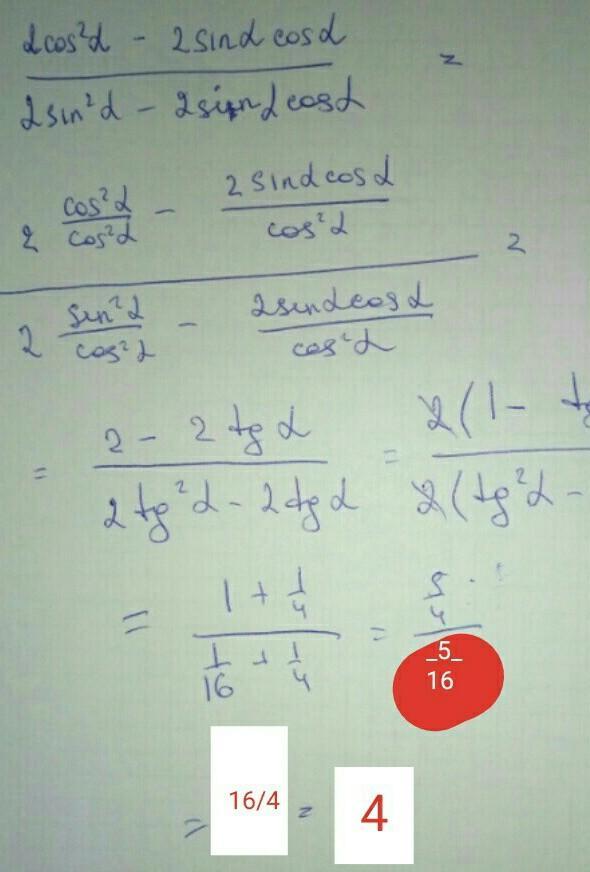 2cos²α - 2sinα cosα
2sin²α - 2sinα cosα =
2 cos²α/cos²α - 2sinα cosα/cos²α
2 sin²α/cos²α - 2sinα cosα/cos²α =
= 2 - 2 tg α / 2 tg²α - 2 tg α = 2(1 - tg / 2(tg²α -
= 1 + 1/4 / 1/16 + 1/4 = 5/4 / 5/16
= 16/4 = 4